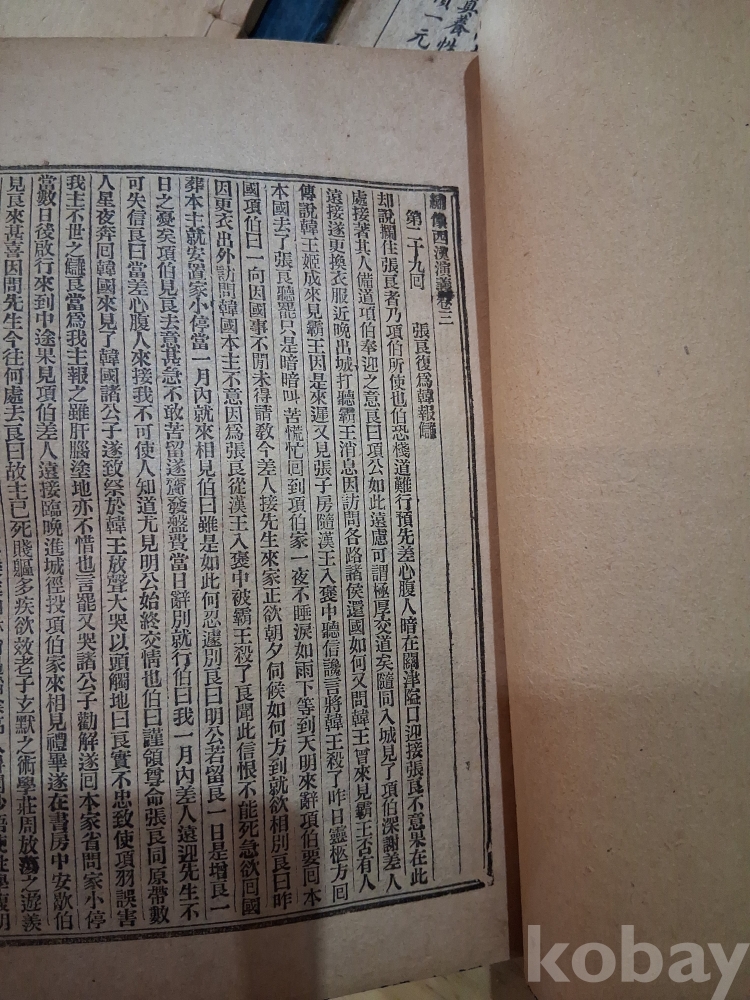 繡像西漢演義卷三
第二十九回　張良復爲韓報讎
却說攔住張良者乃項伯所使也伯恐棧道難行預先差心腹人暗在關津隘口迎接張良不意果在此
處接著其人備道項伯奉迎之意良曰項公如此遠慮可謂極厚交道矣隨同入城見了項伯深謝差人
遠接遂更換衣服近晚出城打聽霸王消息因訪問各路諸侯還國如何又問韓王曾來見霸王否有人
傳說韓王姬成來見霸王因是來遲又見張子房隨漢王入褒中聽信讒言將韓王殺了昨日靈柩方回
本國去了張良聽罷只是暗暗叫苦慌忙回到項伯家一夜不睡淚如雨下等到天明來辭項伯要回本
國項伯曰一向因國事不閒未得請教今差人接先生來家正欲朝夕伺候如何方到就欲相別良曰昨
因更衣出外訪問韓國本主不意因爲張良從漢王入褒中被霸王殺了良聞此信恨不能死急欲回國
葬本主就安置家小停當一月內就來相見伯曰雖是如此何忍遽別良曰明公若留良一日是增良一
日之憂矣項伯見良去意甚急不敢苦留遂齎發盤費當日辭別就行伯曰我一月內差人遠迎先生不
可失信良曰當差心腹人來接我不可使人知道尤見明公始終交情也伯曰謹領尊命張良同原帶數
人星夜奔回韓國來見了韓國諸公子遂致祭於韓王放聲大哭以頭觸地曰良實不忠致使項羽誤害
我主不世之讎良當爲我主報之雖肝腦塗地亦不惜也言罷又哭諸公子勸解遂回本家省問家小停
當數日後啟行來到中途果見項伯差人遠接臨晚進城徑投項伯家來相見禮畢遂在書房中安歇伯
見良來甚喜因問先生今往何處去良曰故主已死賤軀多疾欲效老子玄默之術學莊周放蕩之遊羨
真養性
一元
kobay